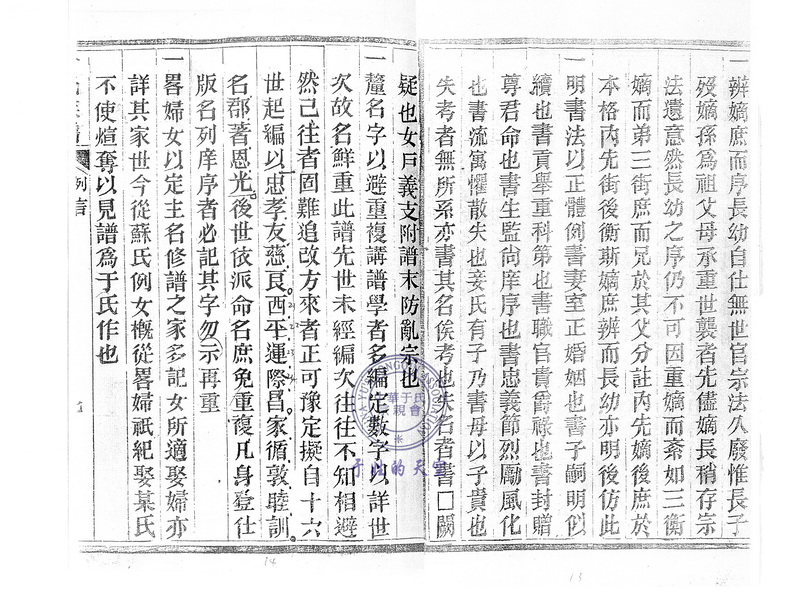 一辨嫡庶而序長幼自仕無世官宗法久廢惟長子
歿嫡孫為祖父母承重世襲者先儘嫡長稍存宗
法遺意然長幼之序仍不可因重嫡而紊如三衡
嫡而弟三街庶而兄於其父分註內先嫡後庶於
本格內先街後衡斯嫡庶辨而長幼亦明後仿此
一明書法以正體例書妻室正婚姻也書子嗣明似
續也書貢舉重科第也書職官貴爵祿也書封贈
尊君命也書生監尚庠序也書忠義節烈勵風化
也書流寓懼散失也妾氏有子乃書母以子貴也
失考者無所系亦書其名俟考也失名者書□闕
疑也女戶義支附譜末防亂宗也
一釐名字以避重複講譜學者多編定數字以詳世
次故名鮮重此譜先世未經編次往往不知相避
然已往者固難追改方來者正可豫定擬自十六
世起編以忠孝友慈良西平運際昌家循敦睦訓
名郡著恩光後世依派命名庶免重複凡身登仕
版名列庠序者必記其字勿示再重
一畧婦女以定主名修譜之家多記女所適娶婦亦
詳其家世今從蘇氏例女概從畧婦祇紀娶某氏
不使煊奪以見譜為于氏作也
例言
華于氏
宗親會
于氏的天空
14
13